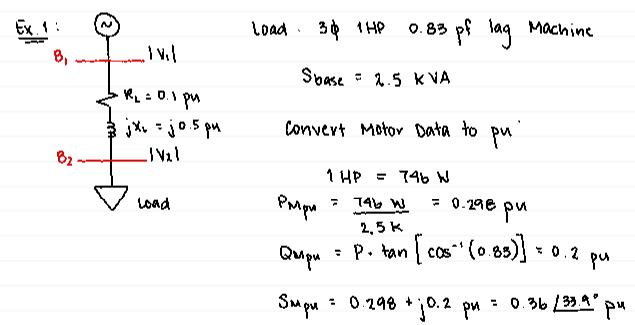 Ex. 1 :
B₁
|V₁|
R_L = 0.1 pu
jX_L = j0.5 pu
B₂
|V₂|
Load
Load . 3ϕ 1HP 0.83 pf lag Machine
Sbase = 2.5 KVA
Convert Motor Data to pu
1 HP = 746 W
P_Mpu = 746 W / 2.5 K = 0.298 pu
Q_Mpu = P. tan [ cos⁻¹ (0.83)] = 0.2 pu
S_Mpu = 0.298 + j0.2 pu = 0.36 ∠33.9° pu